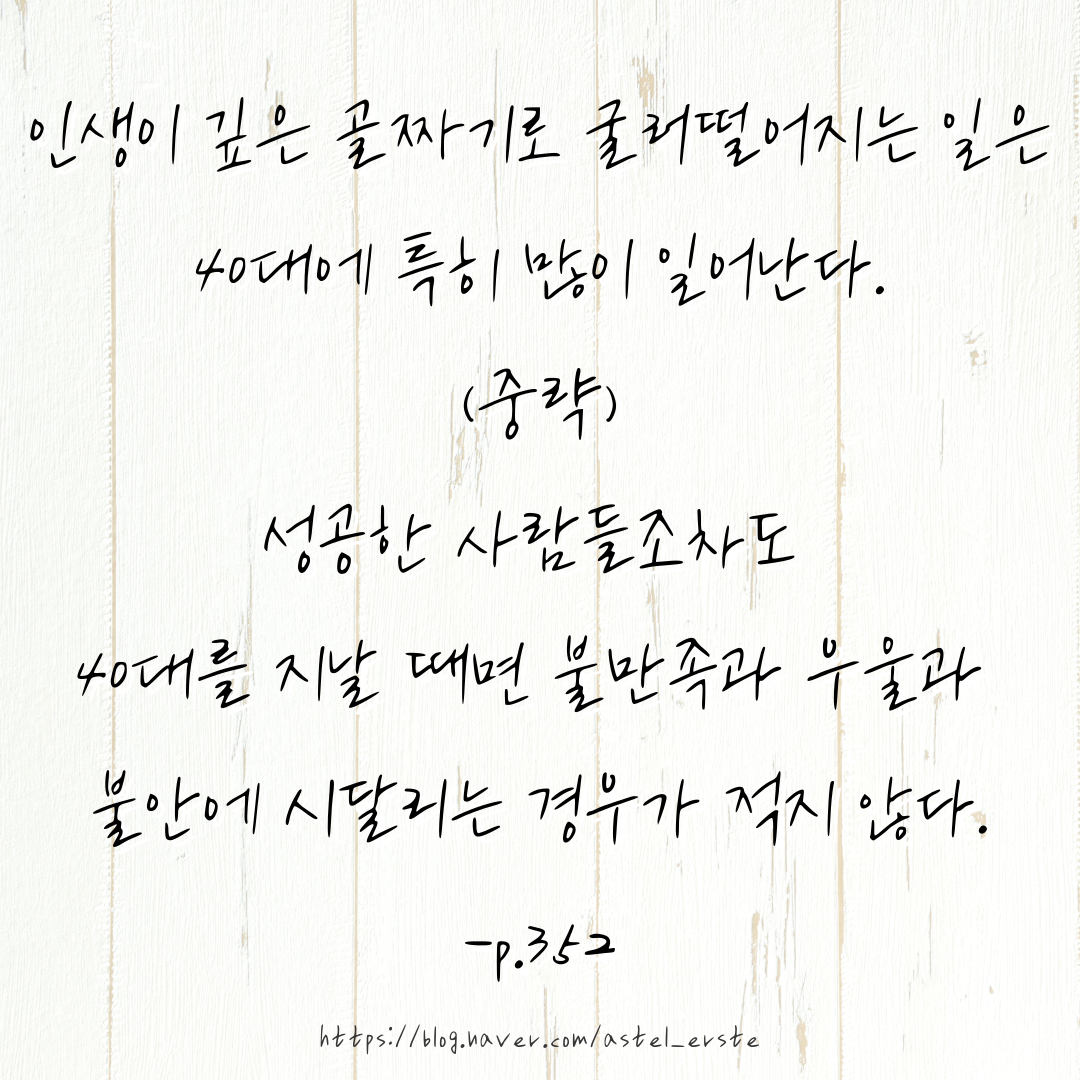 인생이 깊은 골짜기로 굴러떨어지는 일은
40대에 특히 많이 일어난다.
(중략)
성공한 사람들조차도
40대를 지날 때면 불만족과 우울과
불안에 시달리는 경우가 적지 않다.
-p.352
https://blog.naver.com/astel_erste